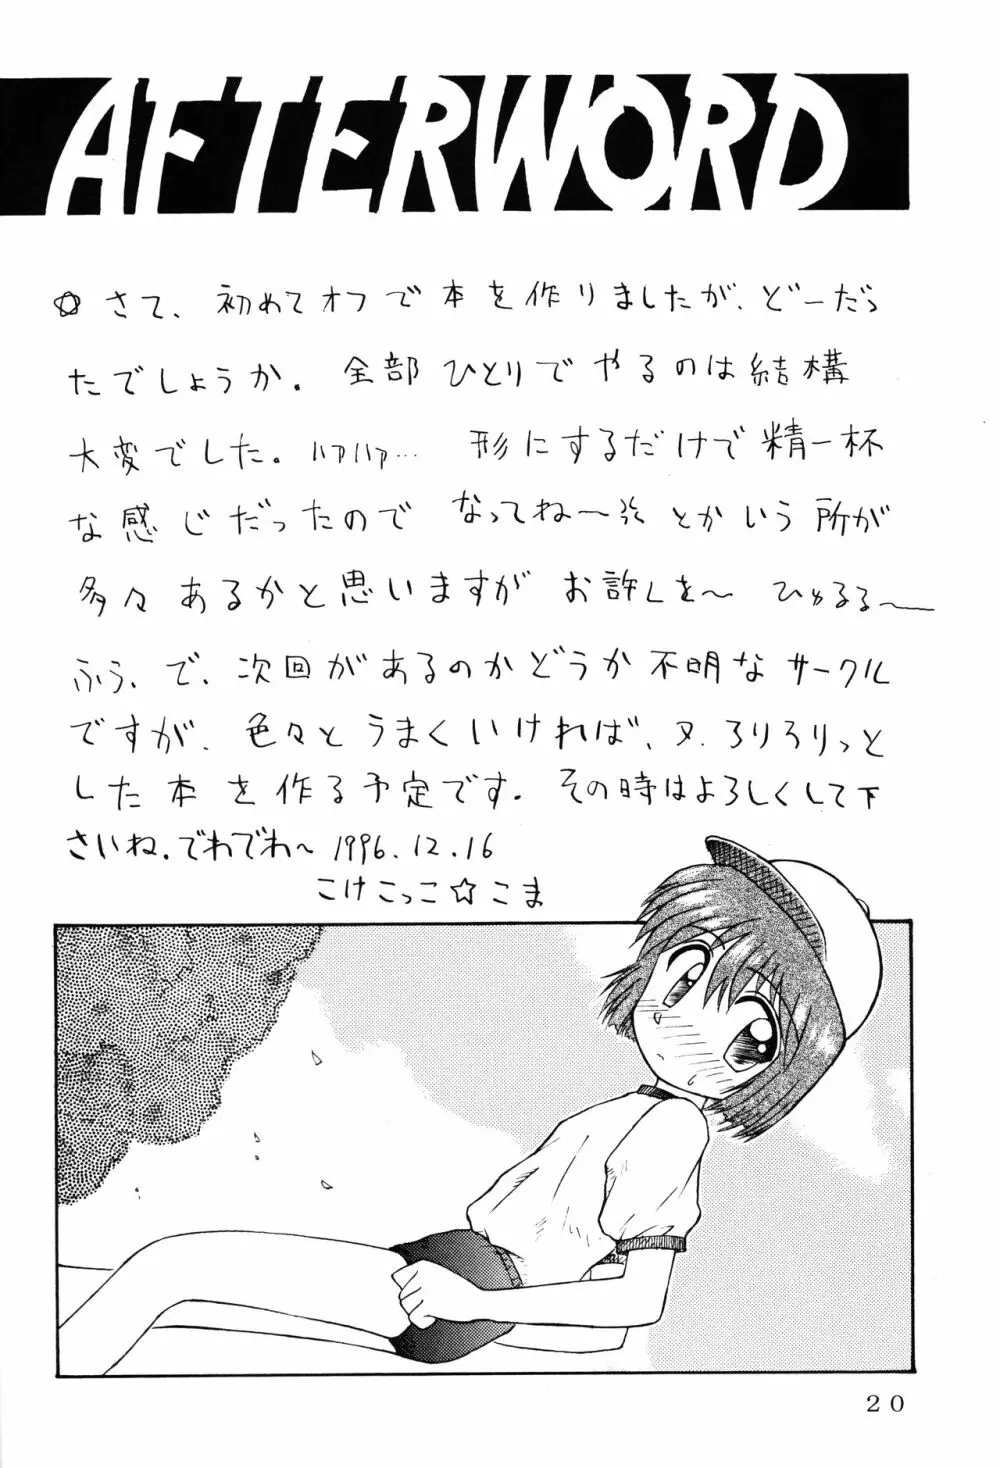 AFTERWORD
☆さて、初めてオフで本を作りましたが、どーだっ
たでしょうか。全部ひとりでやるのは結構
大変でした。ハァハァ… 形にするだけで精一杯
な感じだったので なってね〜ぞ とかいう所が
多々あるかと思いますが お許しを〜 ひゅるる〜
ふう、で、次回があるのかどうか不明なサークル
ですが、色々とうまくいければ、又、ろりろりっと
した本を作る予定です。その時はよろしくして下
さいね。でわでわ〜 1996.12.16
こけこっこ☆こま
20